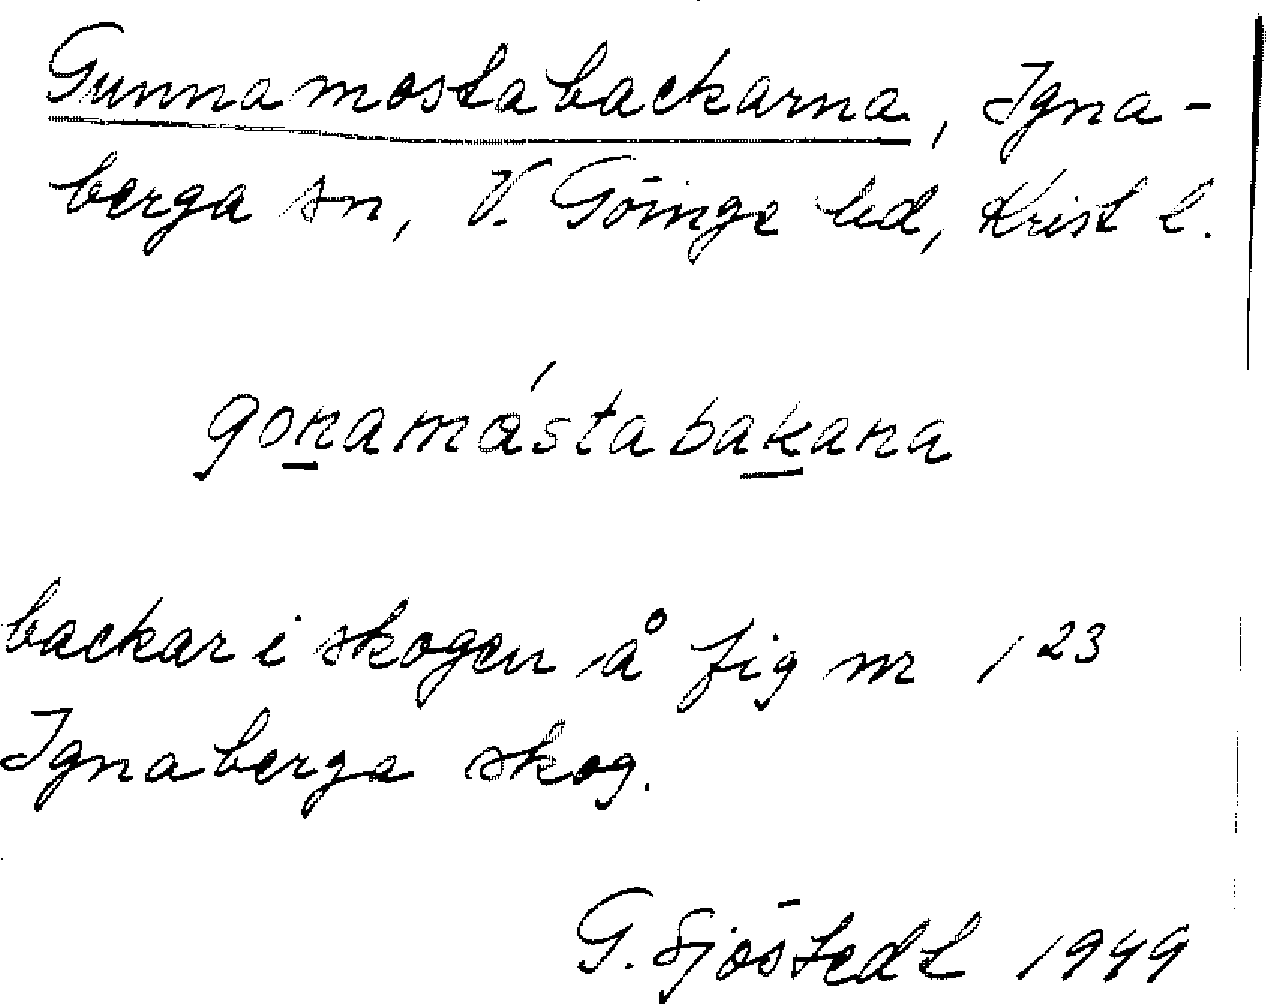 Gunnamostabackarna, Igna-
berga sn, V. Göinge hd, Krist l.
gonamåstabakana
backar i skogen å fig nr 1 23
Ignaberga skog.
G. Sjöstedt 1949